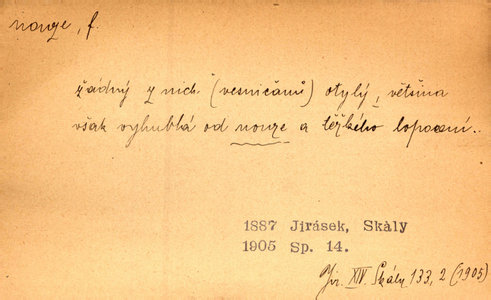 nouze, f.
žádný z nich (vesničanů) otylý, většina
však vyhublá od nouze a těžkého lopocení..
1887 Jirásek, Skàly
1905 Sp. 14.
Jir. XIV. Skály 133, 2 (1905)